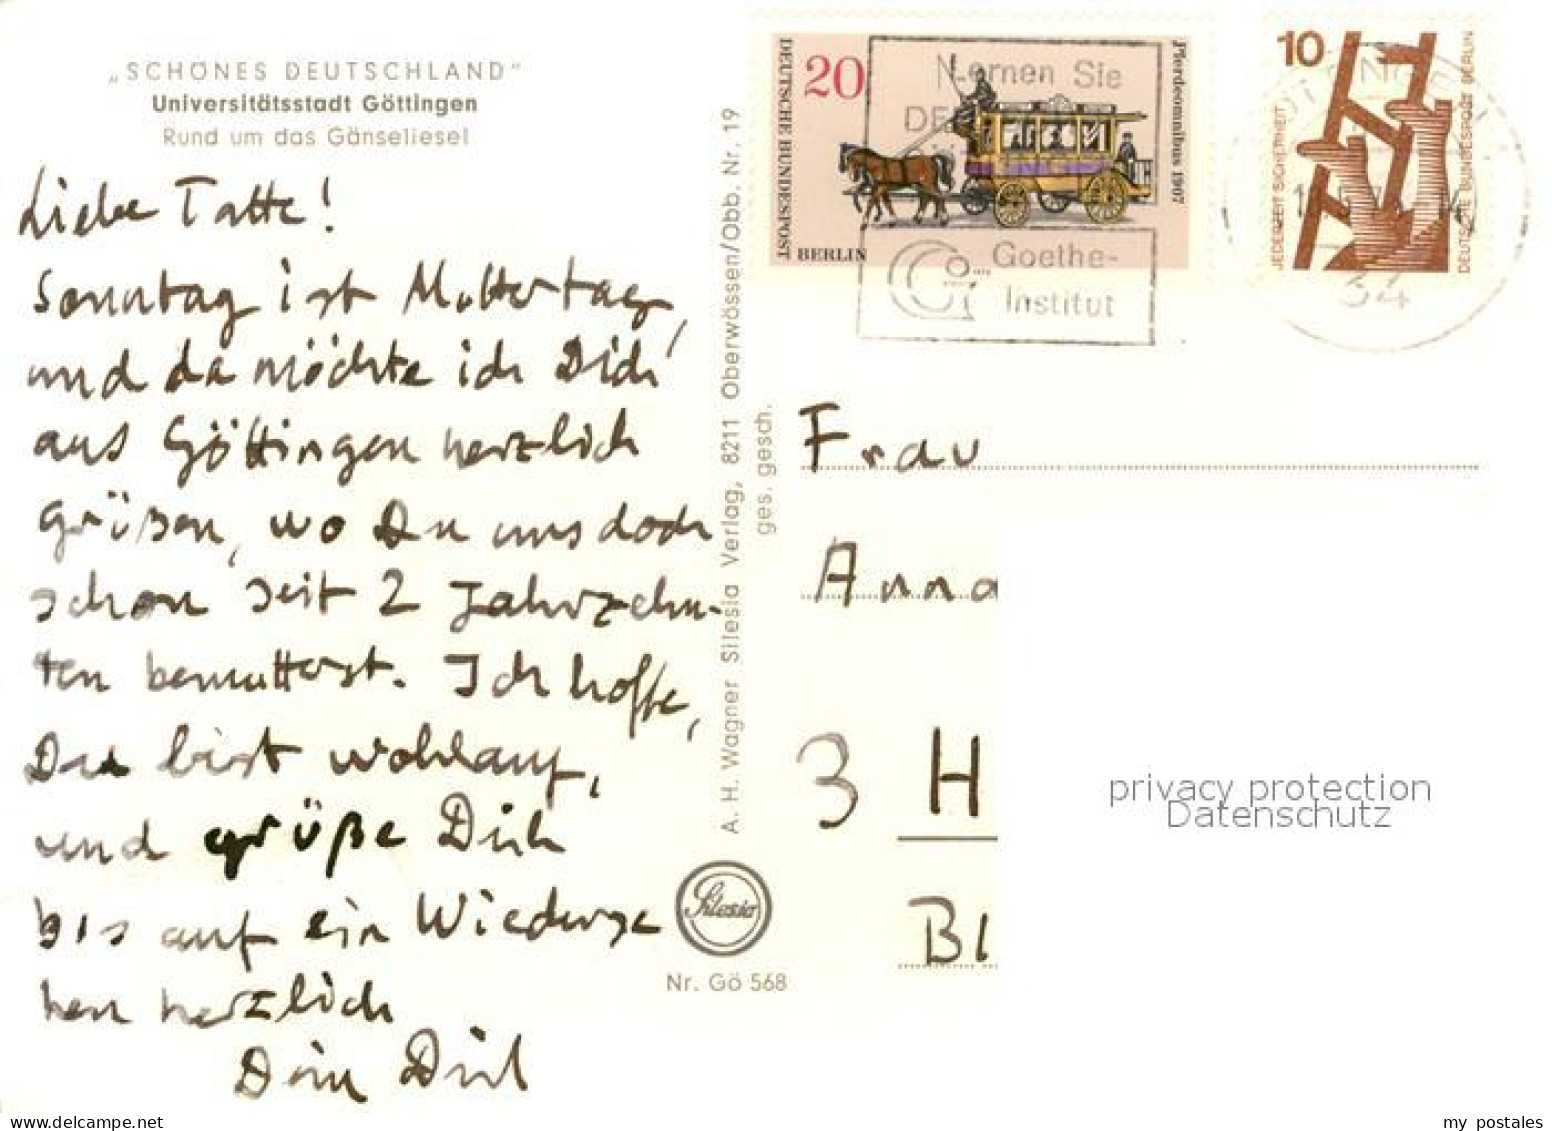 „SCHÖNES DEUTSCHLAND"
Universitätsstadt Göttingen
Rund um das Gänseliesel
Liebe Tatte!
Sonntag ist Muttertag,
und da möchte ich Dich
aus Göttingen herzlich
grüßen, wo Du uns doch
schon seit 2 Jahrzehn-
ten bemutterst. Ich hoffe,
Du bist wohlauf,
und grüße Dich
bis auf ein Wiederse
hen herzlich
Dein Dirk
A. H. Wagner Silesia Verlag, 8211 Oberwössen/Obb. Nr. 19
ges. gesch.
Silesia
Nr. Gö 568
20
DEUTSCHE BUNDESPOST
BERLIN
Pferdeomnibus 1907
Lernen Sie
DE
Goethe-
Institut
10
JEDERZEIT SICHERHEIT
DEUTSCHE BUNDESPOST BERLIN
34
Frau
Anna
3 H
Bl
privacy protection
Datenschutz
my postales